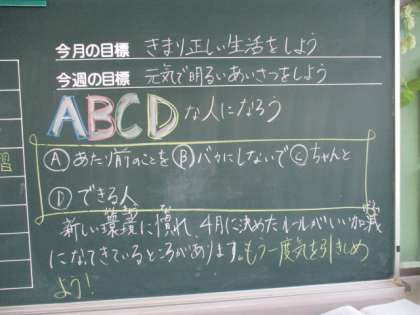 今月の目標 きまり正しい生活をしよう
今週の目標 元気で明るいあいさつをしよう
ABCDな人になろう
Ⓐあたり前のことをⒷバカにしないでⒸちゃんと
Ⓓできる人
新しい環境に慣れ、4月に決めたルールがいい加減
になってきているところがあります。もう一度気を引きしめ
よう!
習